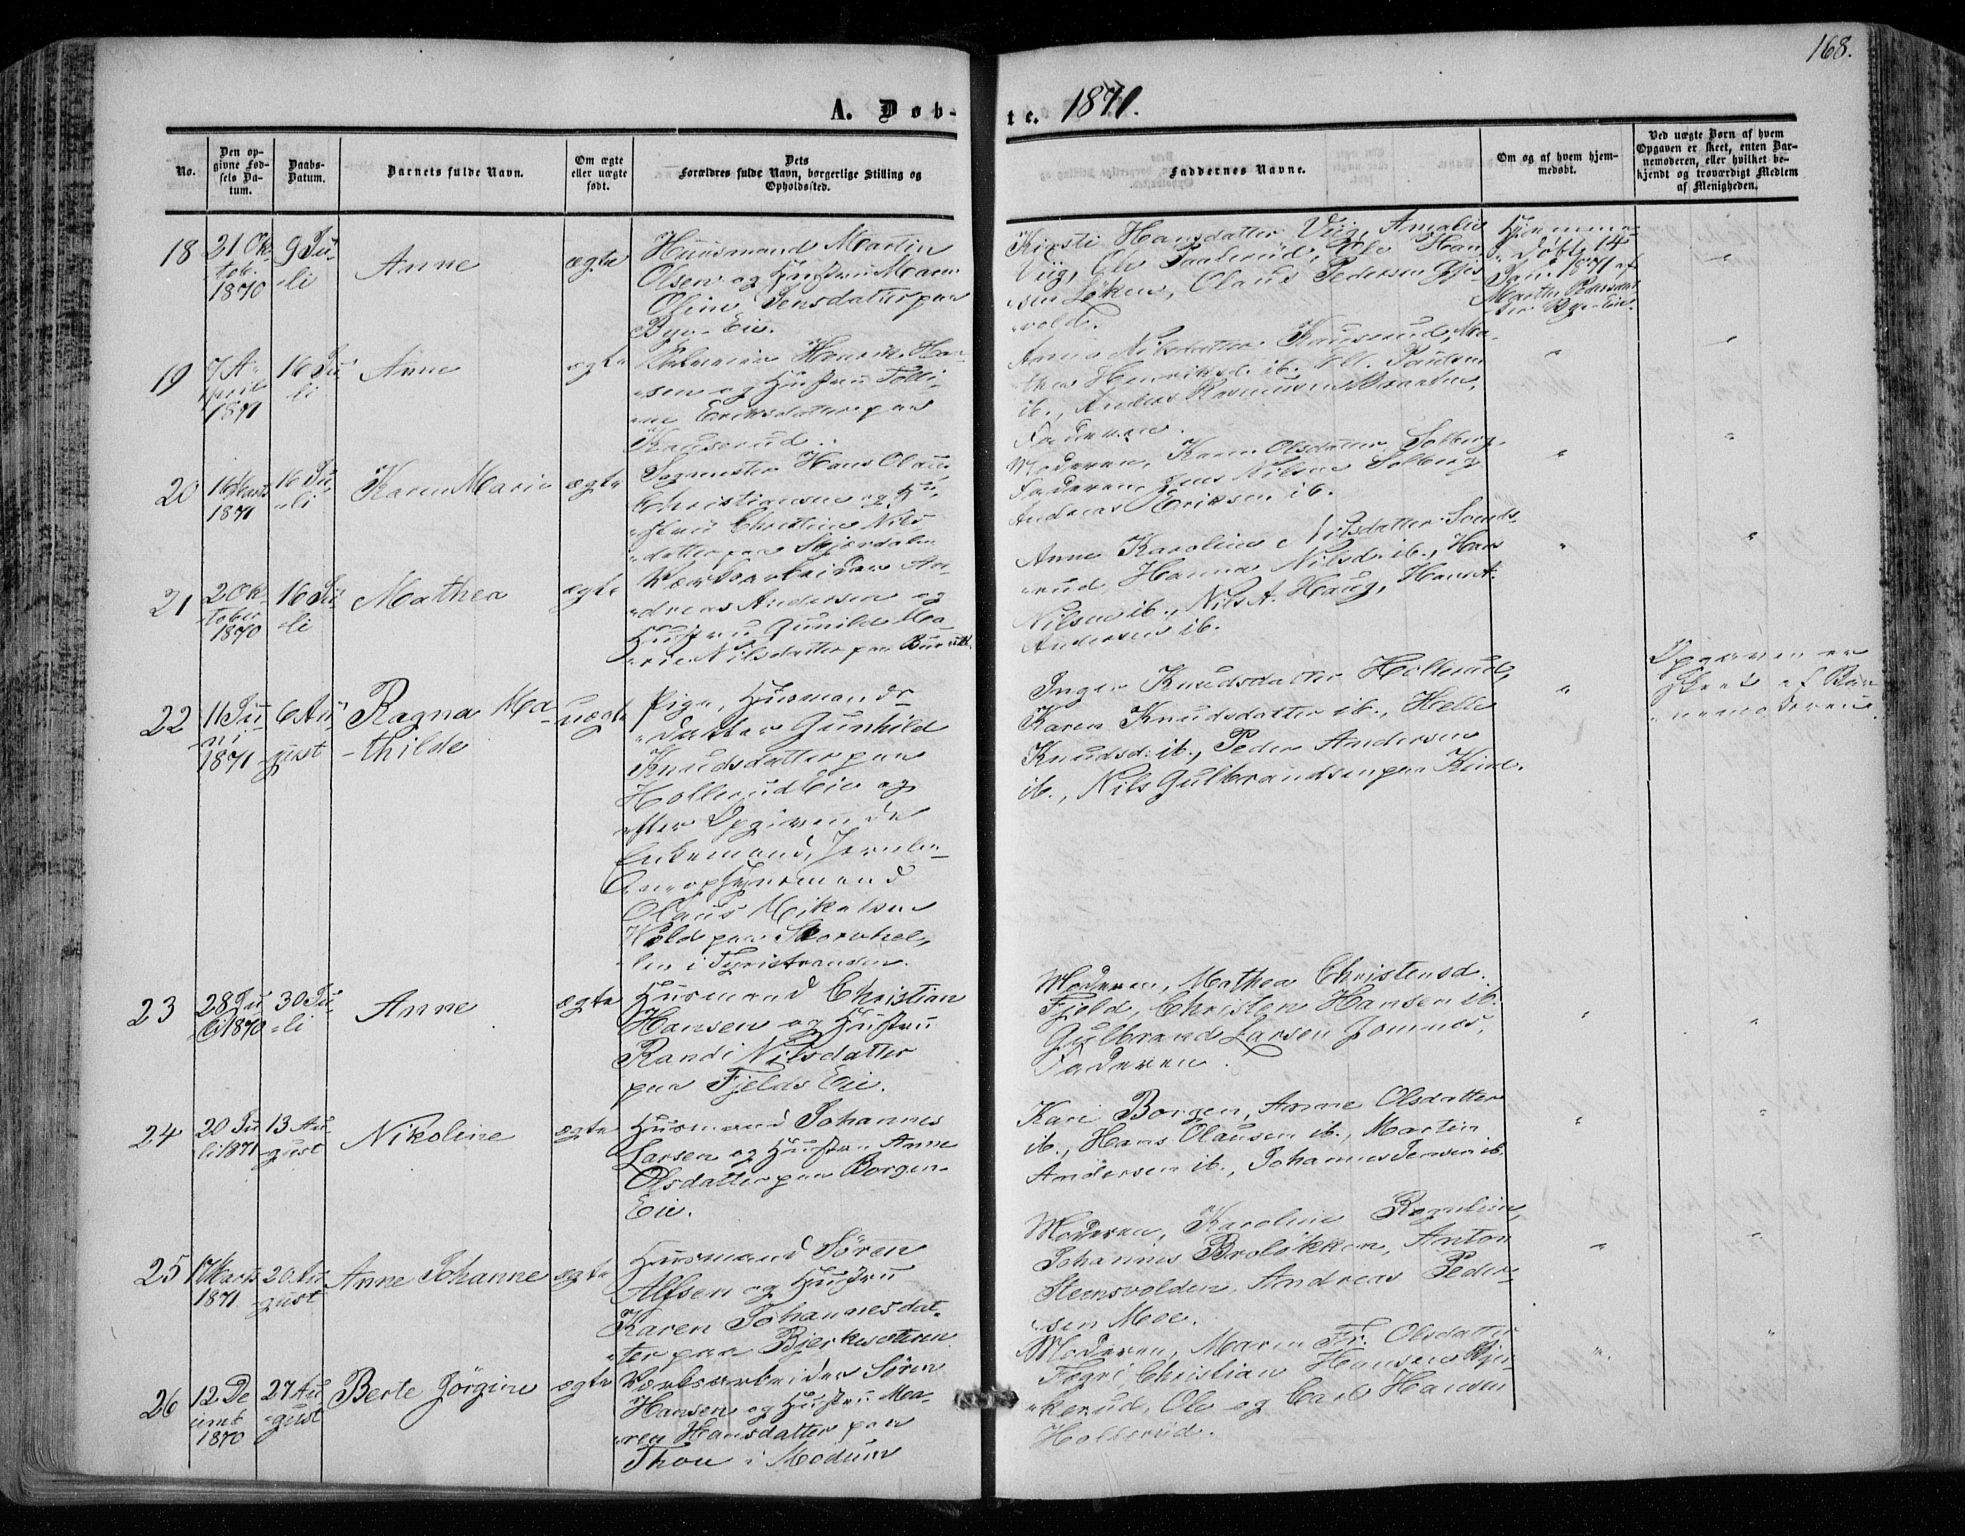 168.
A. Døb-
te. 1871.
No.
Den op-
givne Fød-
sels Da-
tum.
Daabs-
Datum.
Barnets fulde Navn.
Om ægte
eller uægte
født.
Dets
Forældres fulde Navn, borgerlige Stilling og
Opholdssted.
Faddernes Navne.
Om og af hvem hjem-
medøbt.
Ved uægte Børn af hvem
Opgaven er skeet, enten Bar-
nemoderen, eller hvilket be-
kjendt og troværdigt Medlem
af Menigheden.
18
21 Ok-
tob.
1870
9 Ju-
-li
Anne
ægte
Huusmand Martin
Olsen og Hustru Maren
Oline Jensdatter paa
Bye-Eie.
Kirsti Hansdatter Viig, Amalie
Viig, Ole Paalerud, Ole Han-
sen Løken, Claus Pedersen Gjes-
-vold.
Hjemme-
døbt 14
Jan. 1871 af
Marthe Pedersdat-
ter Bye-Eie.
19
7 A-
pril
1871
16 Ju-
li
Anne
ægte
Henrik Han-
-sen og Hustru
Eriksdatter paa
Anne Nilsdatter Ma-
thea Henriksd. ib. Paulsen
ib., Anders Rasmussen
Faderen.
20
16 Marts
1871
16 Ju-
-li
Karen Marie
ægte
Hans Olaus
Christiansen og Hu-
-stru Christine Nils-
-datter paa
Moderen, Karen Olsdatter Solberg,
Faderen, Jens Nilsen Solberg
Andreas Eriksen ib.
21
2 Ok-
tober
1870
16 Ju-
-li
Mathea
ægte
Værksarbeider An-
-dreas Andersen og
Hustru Gunild Ma-
-rie Nilsdatter paa
Anne Karoline Nilsdatter Svends-
-rud, Hanna Nilsd. ib., Hans
Nilsen ib., Nils A. Haug, Hans A.
Andersen ib.
22
11 Ju-
ni
1871
6 Au-
-gust
Ragna Ma-
-thilde
uægte
Pige, Husmands-
-datter Gunhild
Knudsdatter paa
Hollerud Eie og
efter Opgivende
Enkemand, Jernba-
Olaus Mikalsen
-len i Tyristranden.
Inger Knudsdatter Hollerud,
Karen Knudsdatter ib., Helle
Knudsd. ib., Peder Andersen
ib., Nils Gulbrandsen paa
Opgaven er
skeet af Bar-
-nemoderen.
23
28 Ju-
li 1870
30 Ju-
-li
Anne
ægte
Husmand Christian
Hansen og Hustru
Randi Nilsdatter
paa Fjelds Eie.
Moderen, Mathea Christensd.
Fjeld, Christen Hansen ib.
Gulbrand Larsen Jonnes,
Faderen.
24
20 Ju-
li 1871
13 Au-
gust
Nikoline
ægte
Husmand Johannes
Larsen og Hustru Anne
Olsdatter paa Borgen-
Eie.
Kari Borgen, Anne Olsdatter
ib., Hans Olausen ib., Martin
Andersen ib., Johannes Jensen ib.
25
17 Marts
1871
20 Au-
-gust
Anne Johanne
ægte
Husmand Søren
Alfsen og Hustru
Karen Johannesdat-
-ter paa Bjerkesæteren
Moderen, Karoline Rognlien,
Johannes Braløkken, Anton
Steensvolden, Andreas Peder-
-sen Moe.
26
12 De-
cemb.
1870
27 Au-
-gust
Berte Jørgine
ægte
Værksarbeider Søren
Hansen og Hustru Ma-
-ren Hansdatter paa
Thon i Modum
Moderen, Maren Fr. Olsdatter
Christian Hansen Bjer-
-kerud, Ole og Carl Hansen
Hollerud.